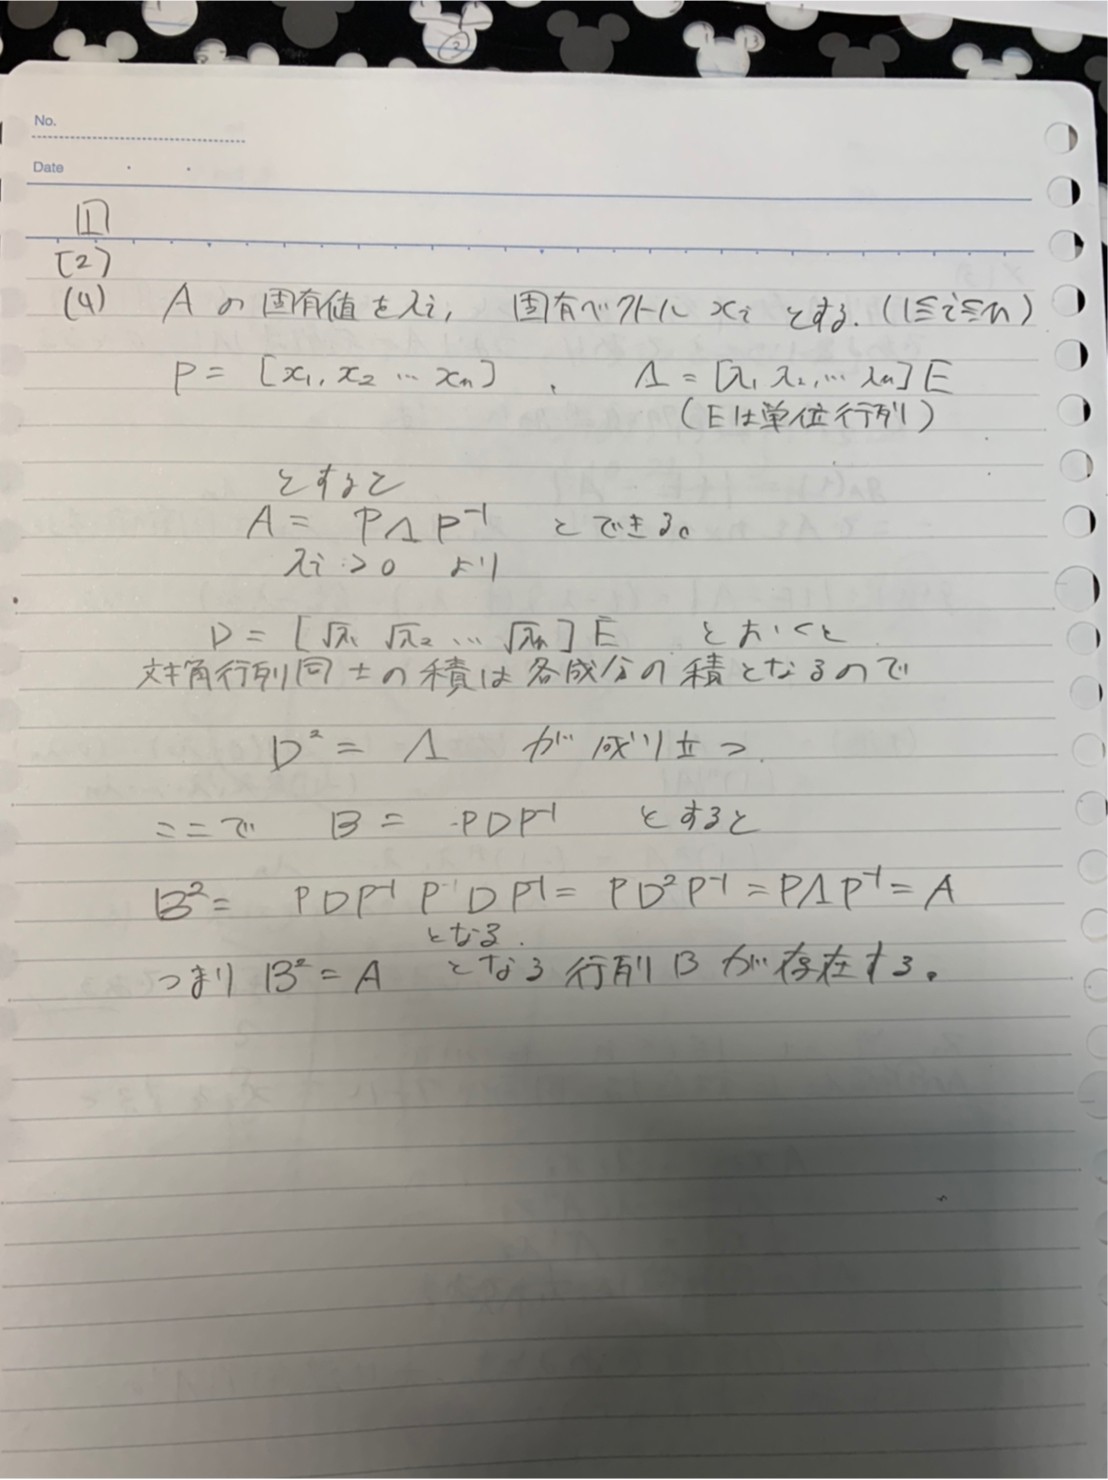 No.
Date
1
[2]
(4) Aの固有値をλi, 固有ベクトル xi とする. (1≦i≦n)
P = [x1, x2 … xn] , Λ = [λ1 λ2, … λn] E
(Eは単位行列)
とすると
A = PΛP⁻¹ とできる。
λi > 0 より
D = [√λ1 √λ2 … √λn] E とおくと
対角行列同士の積は各成分の積となるので
D² = Λ が成り立つ.
ここで B = PDP⁻¹ とすると
B² = PDP⁻¹ P DP⁻¹ = PD²P⁻¹ = PΛP⁻¹ = A
となる.
つまり B² = A となる行列Bが存在する。